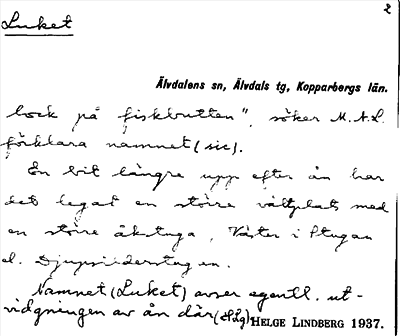 Luket
2
Älvdalens sn, Älvdals tg, Kopparbergs län.
lock på fiskbutten", söker M.A.L.
förklara namnet (sic).
En bit längre upp efter ån har
det legat en större vältplats med
en större åkstuga, Väster i Stugan
el. Djupsiderstugen.
Namnet (Luket) avser egentl. ut-
vidgningen av ån där (Hlg)
HELGE LINDBERG 1937.